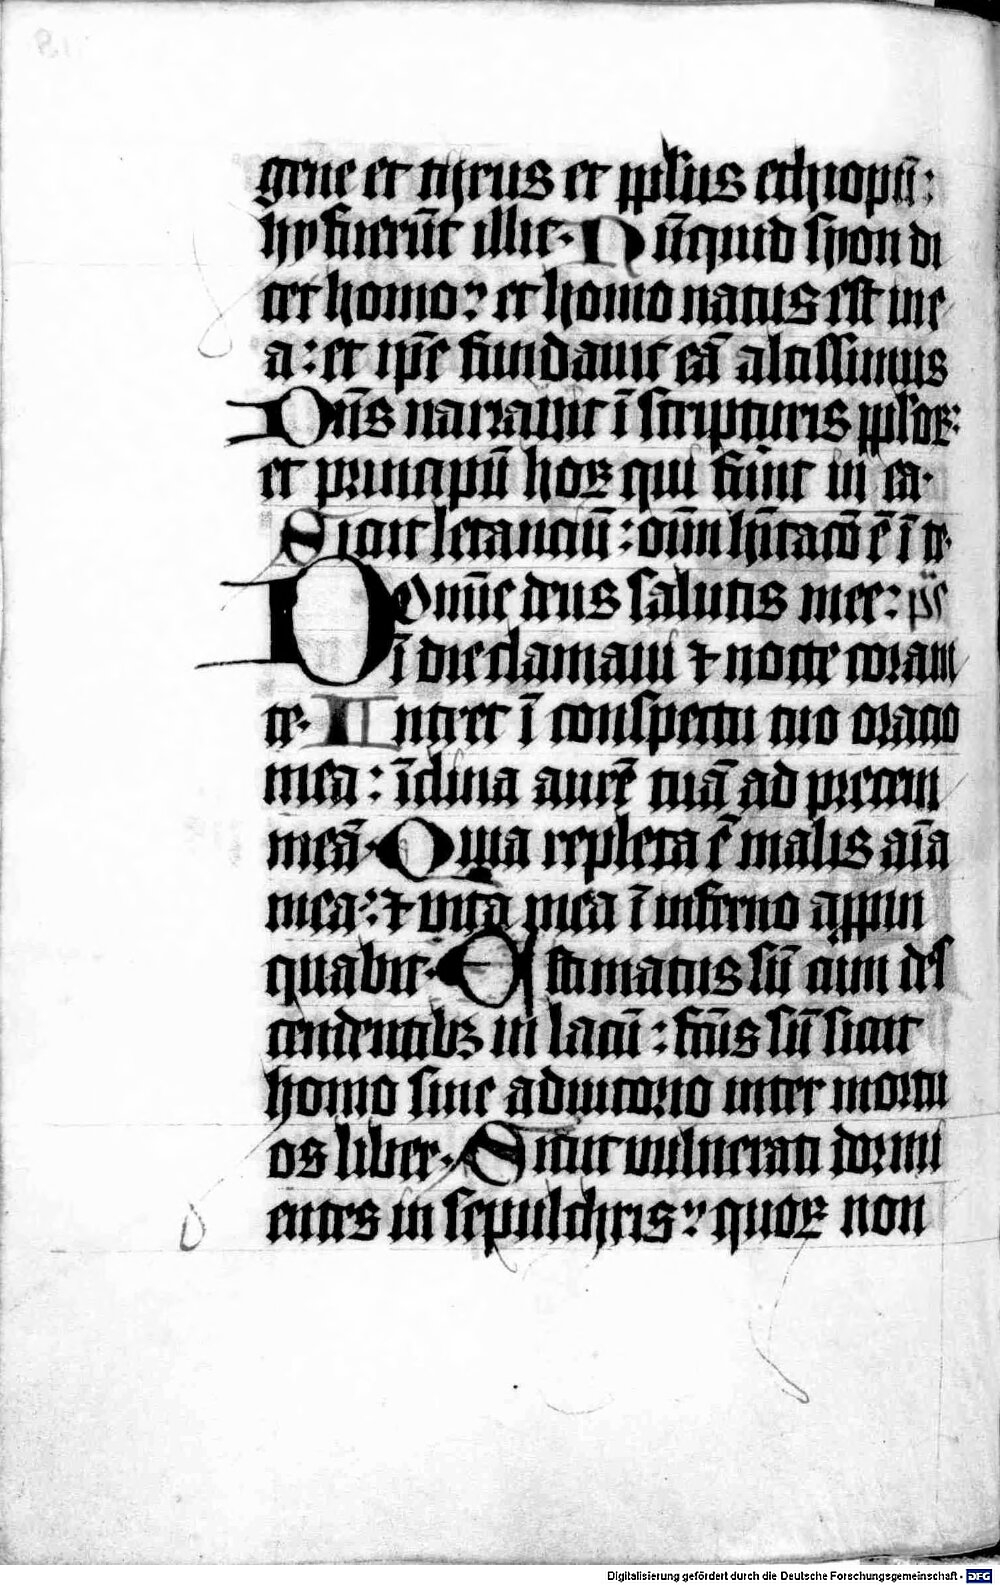 gene et thyrus et pplus ethiopū:
hy fuerūt illic. Nūquid syon di
cet homo? et homo natus est in e
a: et ip̄e fundauit eā altissimus
Dn̄s narrauit ī scripturis pploꝝ:
et principū hoꝝ qui fūnt in ea.
Sicut letanciū: oīm hītacō ē ī te.
Domīe deus salutis mee: ps̄
ī die clamaui ⁊ nocte coram
te. Intret ī conspectu tuo oracio
mea: īclina aurē tuā ad precem
meā. Quia repleta ē malis aīa
mea: ⁊ vita mea ī inferno appin
quabit. Estimatus sū cum des
cendentibꝫ in lacū: fc̄us sū sicut
homo sine adiutorio inter mortu
os liber. Sicut vulnerati dormi
entes in sepulchris? quoꝝ non
Digitalisierung gefördert durch die Deutsche Forschungsgemeinschaft - DFG